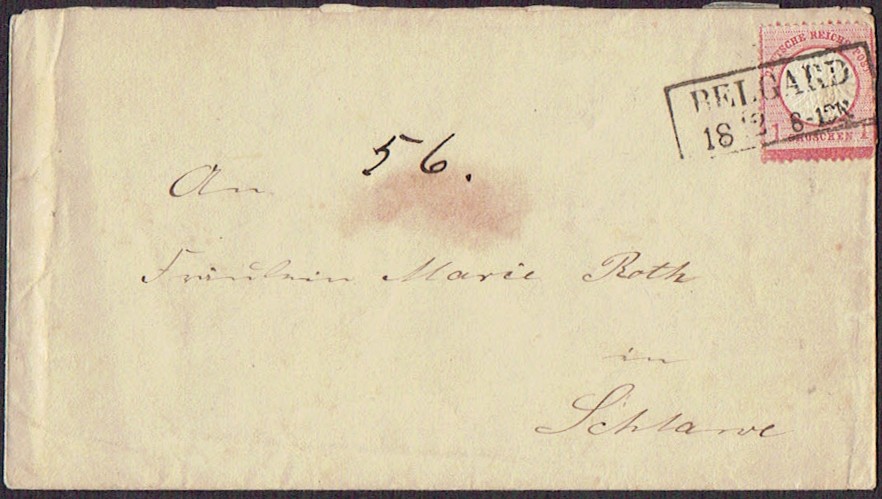 DEUTSCHE REICHS-POST
BELGARD
18 12 8-12N
1 GROSCHEN 1
56.
An
Fräulein Marie Roth
in
Schlawe